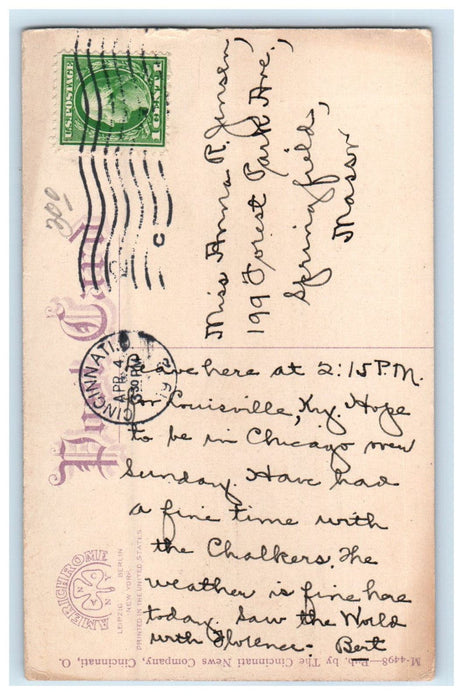 U.S. POSTAGE
1 CENT
300
Post Card
CINCINNATI, O
APR 4
3 30 PM
Miss Anna R. Jensen,
199 Forest Park Ave.,
Springfield,
Mass.
Leave here at 2:15 P.M.
for Louisville, Ky. Hope
to be in Chicago over
Sunday. Have had
a fine time with
the Chalkers. The
weather is fine here
today. Saw the World
with Florence. Bert
AMERICHROME
LEIPZIG BERLIN
NEW YORK
PRINTED IN THE UNITED STATES
M-4498—Pub. by The Cincinnati News Company, Cincinnati, O.